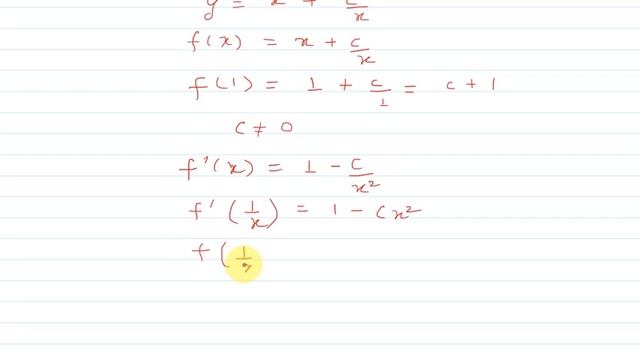 y = x + c/x
f(x) = x + c/x
f(1) = 1 + c/1 = c + 1
c ≠ 0
f'(x) = 1 - c/x²
f'(1/x) = 1 - cx²
f(1/